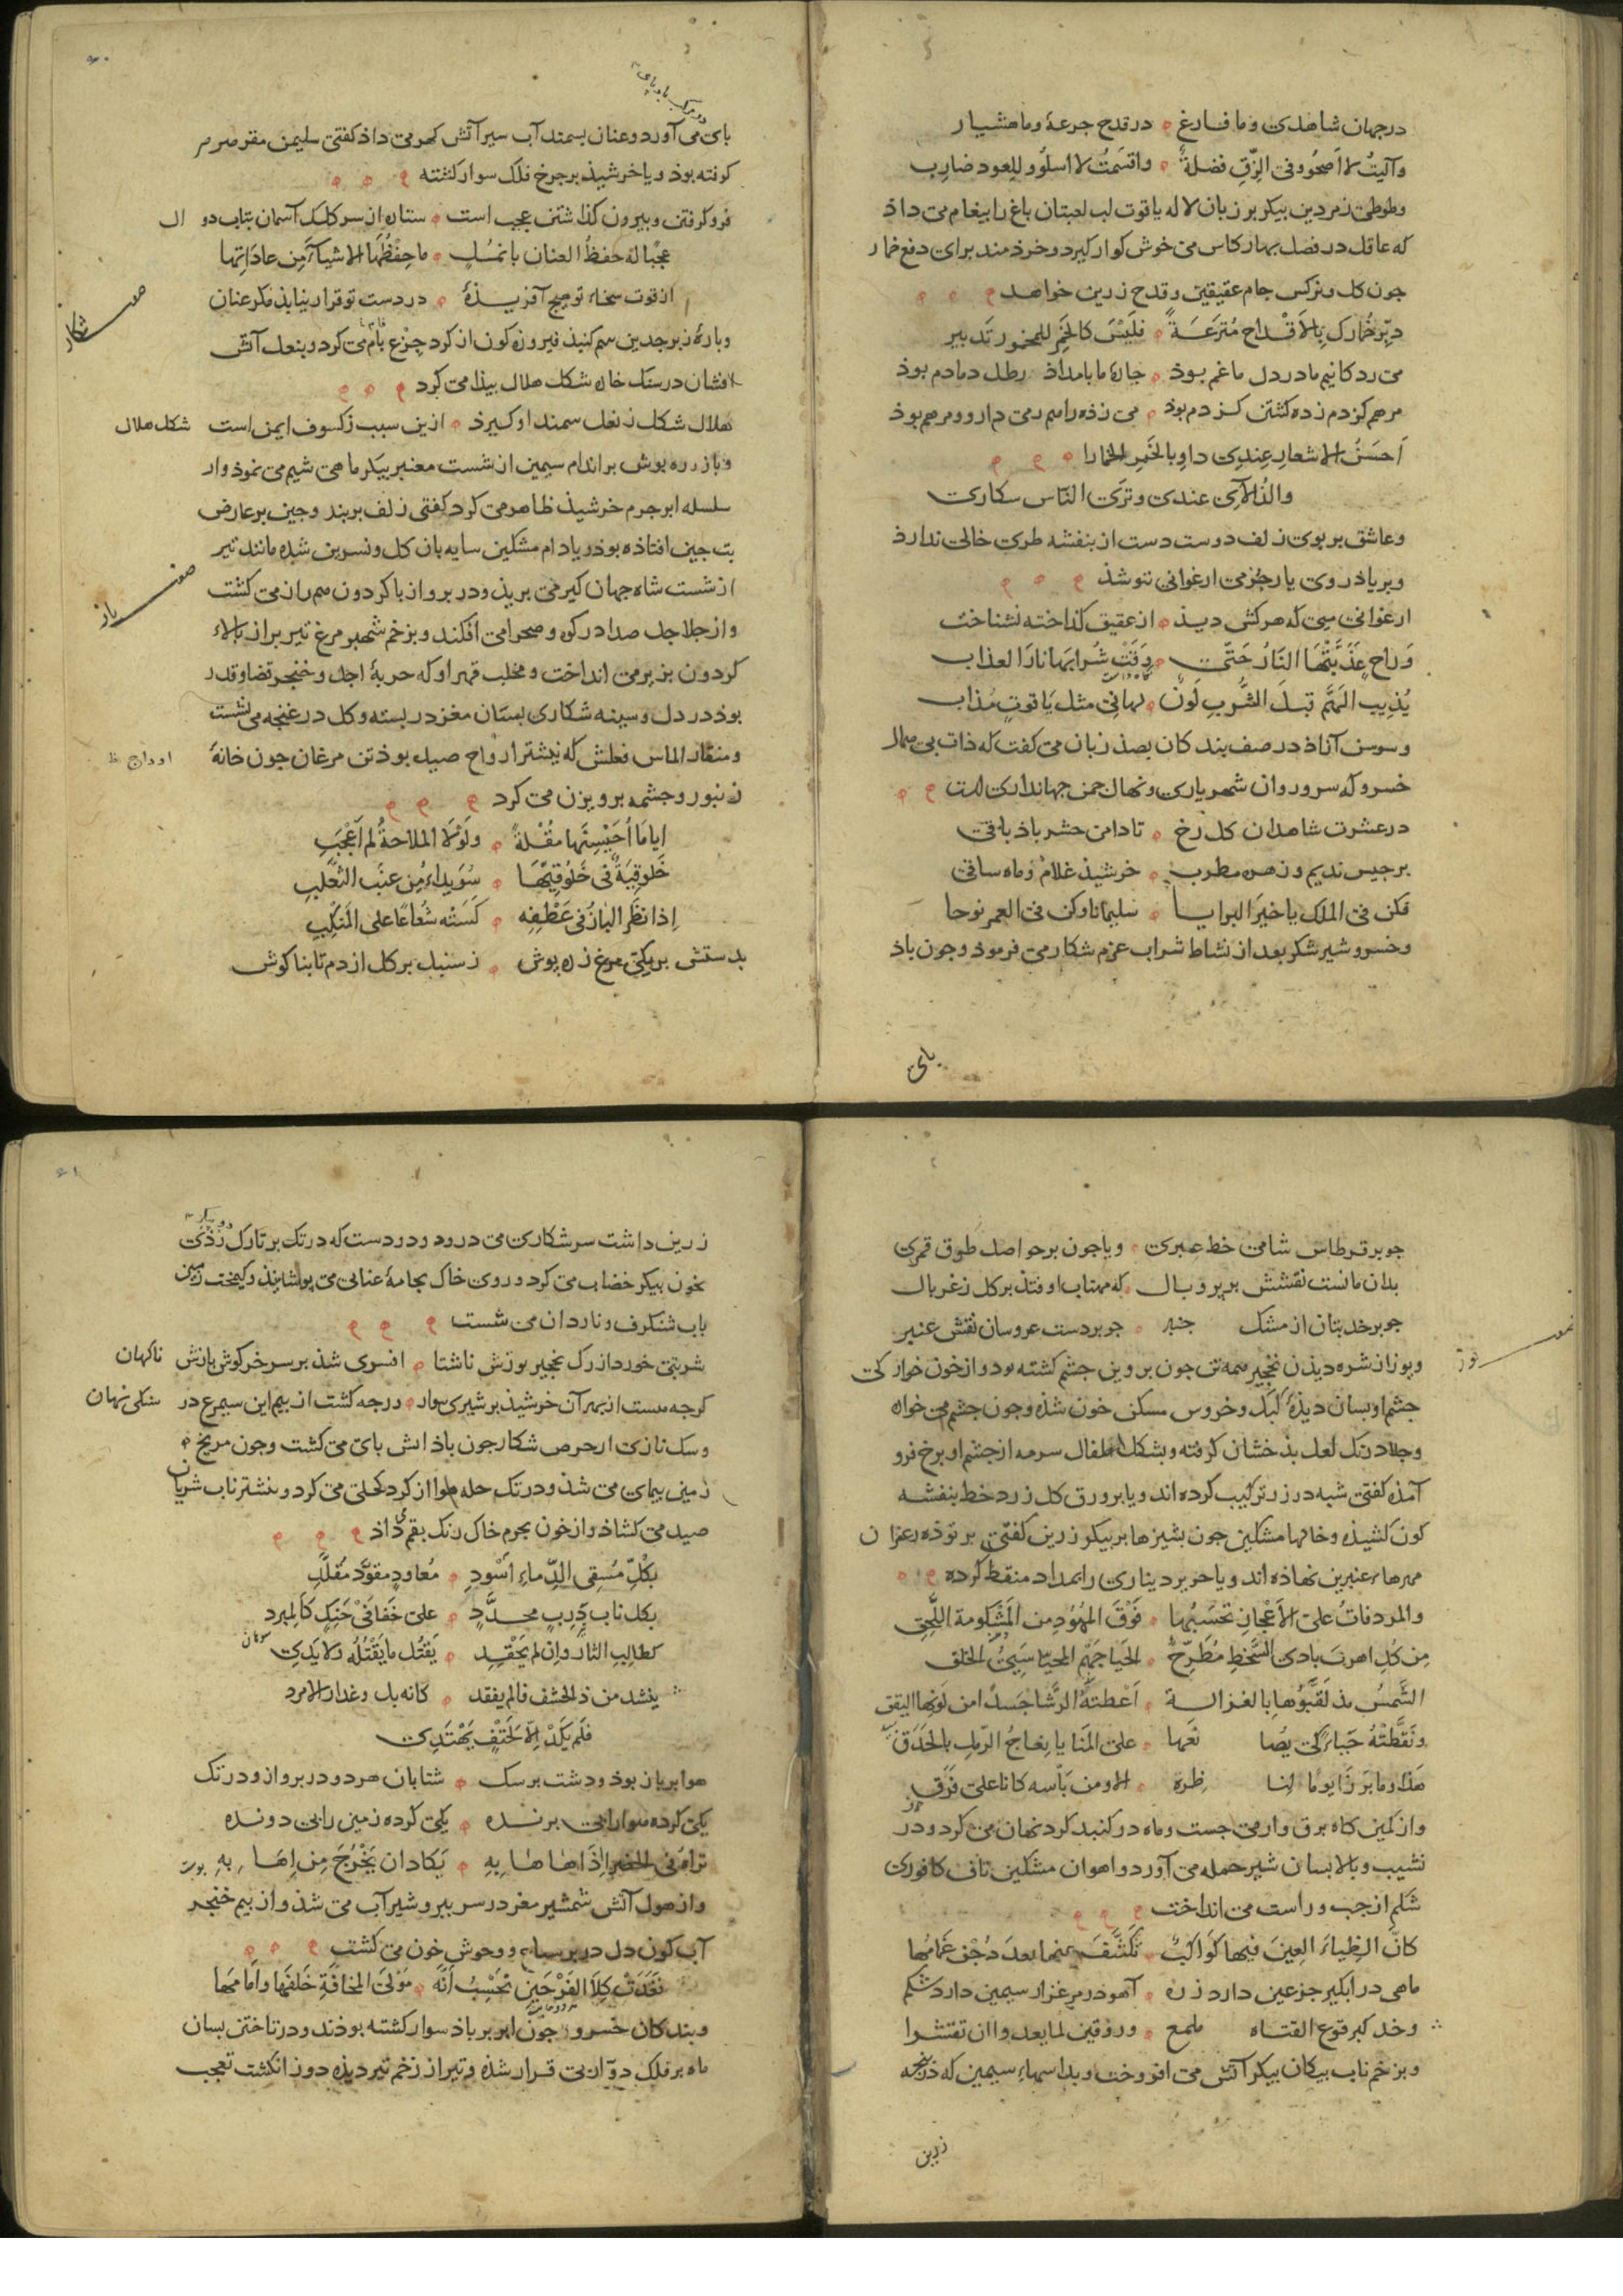 درجهان شاهدی و ما فارغ ٥ در قدح جرعهٔ و ما هشیار
وآلیتُ لا اَصحُو وفی الزِّقِ فضلةٌ ٥ واقسَمتُ لا اسلُو وللِعود ضارِب
وطوطی زمردین پیکر بر زبان لاله یاقوت لب لعبتان باغ را پیغام می داذ
که عاقل در فصل بهار کاس می خوش کوار کیرد و خرذمند برای دفع خمار
جون کل و نرکس جام عقیقین و قدح زرین خواهد
دبِّر خُمارک بِالاَقْداح مُترَعَةً ٥ فلَیْسَ کالخَمِر للمخمور تَدبیر
می رد کانیم ما در دل ما غم بوذ ٥ جارهٔ ما بامداذ رطل دمادم بوذ
مرهم کزدم زده کشتن کزدم بوذ ٥ می زذه را هم رمی دارو و مرهم بوذ
اَحسَنُ الاشعارِ عِندِی داوِ بالخَمرِ الخمارا
والذُ الآیِ عندی وتَرَی النّاس سکاری
وعاشق بر بوی زلف دوست دست از بنفشه طری خالی ندارذ
وبر یاذ روی یار جز می ارغوانی ننوشذ
ارغوانی میی که هرکش دیذ ٥ از عقیق کذاخته نشناخت
وَراحٍ عَذَّبَتْهَا النَارُ حَتّی ٥ وَقَتْ شُرابَهَا نارَ العذاب
یُذیب الهَمَّ قبلَ الشُّربِ لَونٌ ٥ لها فی مثل یَاقوتٍ مُذاب
وسوسن آزاذ در صف بندکان بصذ زبان می کفت که ذات بی همال
خسرو که سرو روان شهریاری و نهال جمن جهانداری است
در عشرت شاهدان کل رخ ٥ تا دامن حشر باذ باقی
برجیس ندیم و زهره مطرب ٥ خرشیذ غلام و ماه ساقی
فکن فی الملک یا خیرَ البرایا ٥ سلیمانا وکن فی العمر نوحا
وخسرو شیر شکر بعد از نشاط شراب عزم شکار می فرموذ وجون باذ
بای
بای می آورد و عنان بسمند آب سیر آتش کهر می داذ کفتی سلیمن مقر صرصر
کوفته بوذ و یا خرشیذ بر جرخ فلک سوار کشته
فرو کرفتن و بیرون کذاشتن عجب است ٥ ستاره از سر کلک آسمان بتاب دوال
عجبًا لهُ حفظُ العنان بانمُلٍ ٥ ما حِفْظُهَا الاشیآءَ مِن عاداتِها
از قوت سخاء تو هیج آفریذهٔ ٥ در دست تو قرار نیابذ مکر عنان
صفت شکار
وبارهٔ زبرجدین سم کنبذ فیروزه کون از کرد جزع بام می کرد و بنعل آتش
افشان در سنک خاره شکل هلال بیذا می کرد
هلال شکل ز نعل سمند او کیرذ ٥ ازین سبب ز کسوف ایمن است شکل هلال
وباز زره بوش بر اندام سیمین از شست معنبر بیکر ماهی شیم می نموذ و از
سلسله ابر جرم خرشیذ ظاهر می کرد کفتی زلف بربند و جین بر عارض
بت جین افتاذه بوذ و یا دام مشکین سایه بان کل و نسرین شده مانند تیر
از شست شاه جهان کیر می بریذ و در برواز با کردون هم راز می کشت
صفت باز
واز جلاجل صدا در کوه و صحرا می افکند و بزخم شهبر مرغ تیر بر از بالاء
کردون بزیر می انداخت و مخلب قهر او که حربهٔ اجل و خنجر قضا و قدر
بوذ در دل و سینه شکاری بستان مغز در بسته و کل در غنجه می نشست
ومنقار الماس فعلش که نیشتر ارواح صید بوذ تن مرغان جون خانهٔ
اوداج ظ
زنبور و جشمه برویزن می کرد
ایامَا اُحَیْسِنَها مقُلةً ٥ ولَوْلَا الملاحةُ لم اَعْجَبِ
خَلوقیَةٌ فی خَلُوقِیّهَا ٥ سُوَیداءُ مِن عنَبِ الثعلَبِ
اِذا نظَر البازُ فی عَطْفِهِ ٥ کَسَتْه شُعاعًا علی المَنکِبِ
بدستش بر یکی مرغ زره بوش ٥ ز سنبل بر کل از دم تا بناکوش
جو بر قرطاس شامی خط عبری ٥ ویا جون بر حواصل طوق قمری
بدان مانست نقشش بر پر و بال ٥ که مهتاب اوفتذ بر کل ز غربال
جو بر خد بتان از مشک جنبر ٥ جو بر دست عروسان نقش عنبر
صفت یوز
ویوز از شره دیذن نخجیر همه تن جون بروین جشم کشته بود و از خون خوارکی
جشم او بسان دیذهٔ کبک و خروس مسکن خون شذه و جون جشم می خواره
وجلاد رنک لعل بذخشان کرفته و بشکل اطفال سرمه از جشم او برخ فرو
آمذه کفتی شبه در زر ترکیب کرده اند و یا بر ورق کل زرد خط بنفشه
کون کشیذه و خالها مشکین جون بشیزها بر بیکر زرین کفتی بر توذه زعفران
مهرهاء عنبرین نهاذه اند و یا حریر دیناری را بمداد منقط کرده
والمردفاتُ علی الاَعْجازِ تحَسَبُها ٥ فَوْقَ المُهُودِ مِن المَشکومة اللُّحقِ
مِن کُلِ اهرتَ بادی السُّخطِ مُطَّرِحِ ٥ الحَیا جَهْمِ المحیّا سَیّیِ الخلق
الشَّمسُ مذ لَقَّبُوُها بِالغزالة ٥ اَعْطتهُ الرَّشا جَسداً من لَونِها الیقق
ونَقَّطَتْهُ حَباءً کی یُصا نعَها ٥ علی المَنایا نِعاجُ الرّملِ بالحَدَقِ
هَذا وما بَرزَا یومًا لنا ظِرِه ٥ الا ومن بَأسه کانا علی فَرَقِ
واز کمین کاه برق وار می جست و ماه در کنبد کرد نهان می کرد و در
نشیب و بالا بسان شیر حمله می آورد و اهوان مشکین ناف کافوری
شکم از جب و راست می انداخت
کانّ الظِباءَ العِینَ فیها کَواکبٌ ٥ تکَشَّفَ عنها بعدَ دُجْنٍ غَمامُها
ماهی در ابکیر جزعین دارد زره ٥ آهو در مرغزار سیمین دارد شکم
وخد کبرقوع الفتاه ملمع ٥ وروقین لما بعد و ان تقشرا
وبزخم ناب بیکان بیکر آتش می افروخت و بدا سهاء سیمین که در پنجه
زرین
زرین داشت سر شکاری می درود و در دست که در تک بر تارک
بخون بیکر خضاب می کرد و روی خاک بجامهٔ عنابی می بوشانیذ و کیمخت زمین
باب شنکرف و ناردان می شست
شربتی خورد از رک نخجیر یوزش ناشتا ٥ افسری شذ بر سر خرکوش بازش ناکهان
کرجه هست از بهر آن خورشیذ بر شیری سوار ٥ ورجه کشت از بیم این سیمرغ در شکلی نهان
وسک تازی از حرص شکار جون باذ اش بای می کشت و جون مریخ
زمین بیمای می شذ و در تک حله هوا از کرد کحلی می کرد و بنشتر ناب شریان
صید می کشاذ و از خون بجرم خاک رنک بقم می داذ
بکُلِّ مُسْقِی الدِّماءِ اَسْودِ ٥ مُعاودٍ مقوَّد مُقلَّدِ
بکل نابٍ ذَرِبٍ محدَّدٍ ٥ علی حَفافَیْ حَنَکٍ کَالمبرد
کطالِبِ الثار وان لم یَحْقِدِ ٥ یَقتُل ما یَقْتُلُهُ ولا یَدی
ینشد من ذا الخشف فالم یفقد ٥ کانه بل وعذار الامرد
فلَم یکَدْ اِلّا لحَتْفٍ یَهْتَدِی
هوا بر باز بوذ و دشت بر سک ٥ شتابان هر دو در برواز و در تک
یکی کرده هوا را بی برنده ٥ یکی کرده زمین را بی دونده
تراهُ فی الحضر اِذَا هاهَا بِهِ ٥ یَکادان یَخْرُجَ مِن اِهَا بِهِ
واز هول آتش شمشیر مغز در سر ببر و شیر آب می شذ و از بیم خنجر
آب کون دل در بر سباع و وحوش خون می کشت
فغَدَتْ کِلاَ الفَرْجَینِ تَحْسِبُ اَنَّه ٥ مَوْلیَ المخافةِ خَلفَها واَمامُها
وبندکان خسرو جون ابر بر باذ سوار کشته بوذند و در تاختن بسان
ماه بر فلک دوّار بی قرار شذه و تیر از زخم تیر دیذه دوز انکشت تعجب